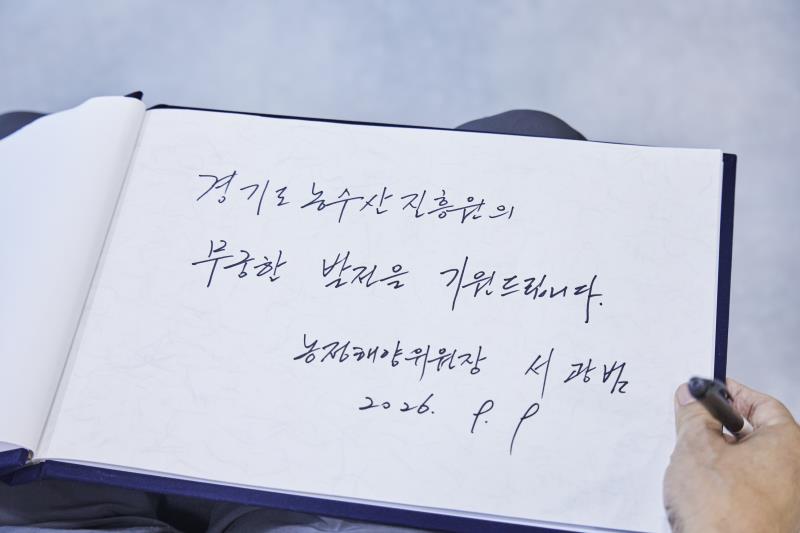 경기도 농수산진흥원의
무궁한 발전을 기원드립니다.
농정해양위원장 서광범
2026. 9. 9